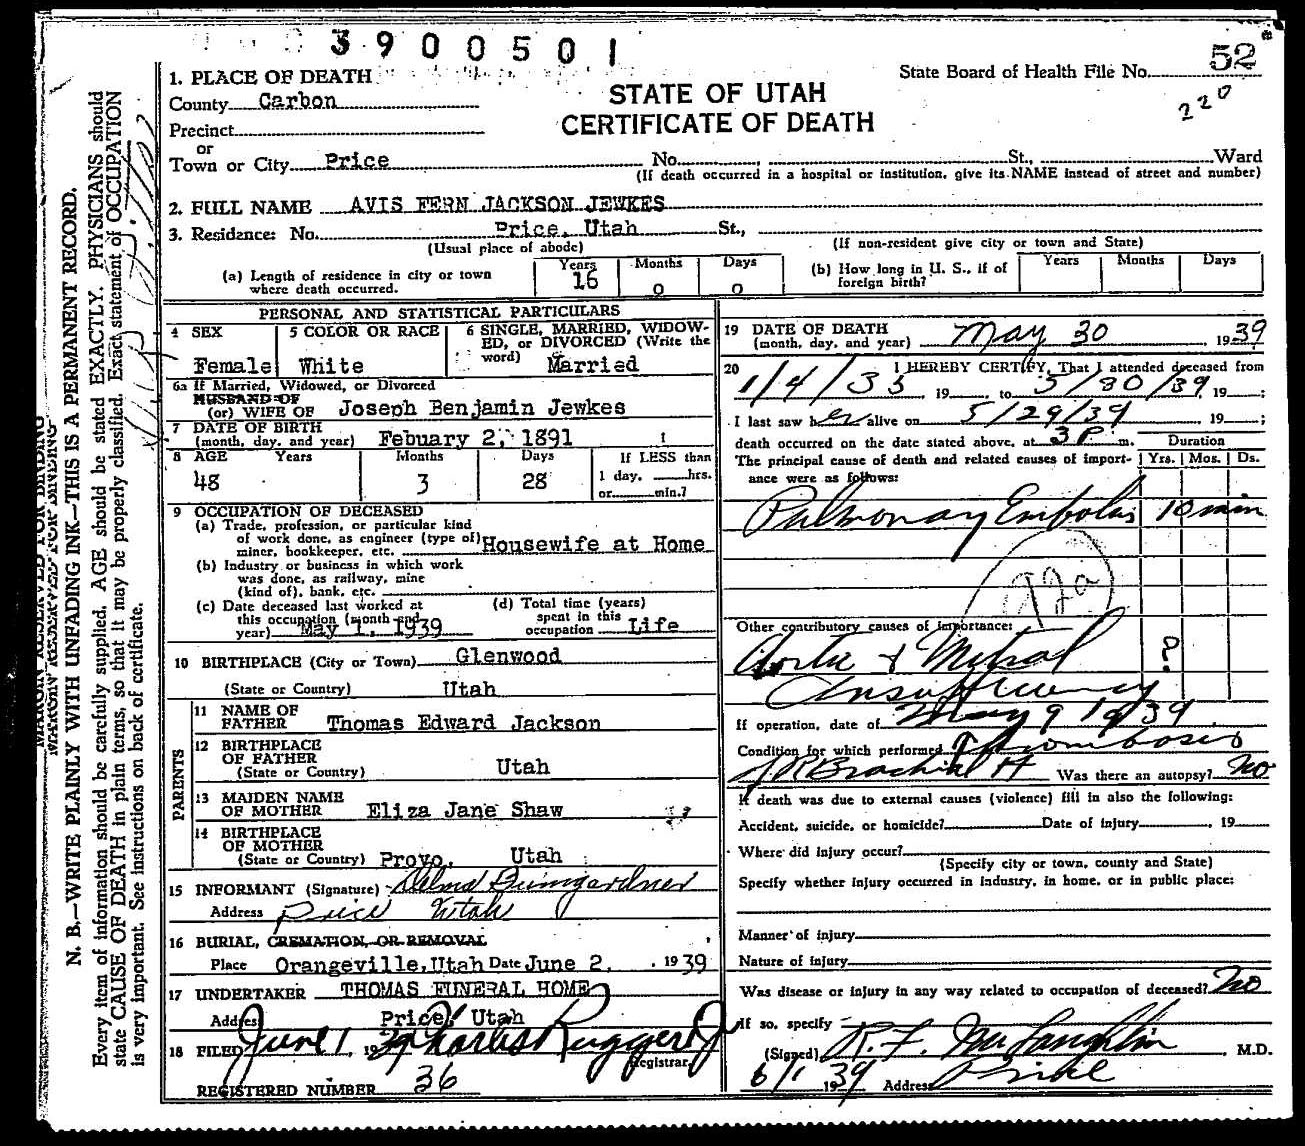 3900501
52
State Board of Health File No.
220
STATE OF UTAH
CERTIFICATE OF DEATH
1. PLACE OF DEATH
County Carbon
Precinct
or
Town or City Price No. , St., Ward
(If death occurred in a hospital or institution, give its NAME instead of street and number)
2. FULL NAME AVIS FERN JACKSON JEWKES
3. Residence: No. Price, Utah St.,
(Usual place of abode) (If non-resident give city or town and State)
(a) Length of residence in city or town where death occurred. Years 16 Months 0 Days 0
(b) How long in U. S., if of foreign birth? Years Months Days
PERSONAL AND STATISTICAL PARTICULARS
4 SEX Female
5 COLOR OR RACE White
6 SINGLE, MARRIED, WIDOW-
ED, or DIVORCED (Write the
word) Married
6a If Married, Widowed, or Divorced
HUSBAND OF
(or) WIFE OF Joseph Benjamin Jewkes
7 DATE OF BIRTH
(month, day, and year) Febuary 2, 1891
8 AGE Years Months Days If LESS than
48 3 28 1 day, hrs.
or min.?
9 OCCUPATION OF DECEASED
(a) Trade, profession, or particular kind
of work done, as engineer (type of)
miner, bookkeeper, etc. Housewife at Home
(b) Industry or business in which work
was done, as railway, mine
(kind of), bank, etc.
(c) Date deceased last worked at
this occupation (month and
year) May 1, 1939
(d) Total time (years)
spent in this
occupation Life
10 BIRTHPLACE (City or Town) Glenwood
(State or Country) Utah
PARENTS
11 NAME OF
FATHER Thomas Edward Jackson
12 BIRTHPLACE
OF FATHER
(State or Country) Utah
13 MAIDEN NAME
OF MOTHER Eliza Jane Shaw
14 BIRTHPLACE
OF MOTHER
(State or Country) Provo, Utah
15 INFORMANT (Signature) Delma Bumgardner
Address Price Utah
16 BURIAL, CREMATION, OR REMOVAL
Place Orangeville, Utah Date June 2, 1939
17 UNDERTAKER THOMAS FUNERAL HOME
Address Price, Utah
18 FILED June 1, 1939 Charles Ruggeri Jr
Registrar
REGISTERED NUMBER 36
19 DATE OF DEATH
(month, day, and year) May 30, 1939
20 I HEREBY CERTIFY, That I attended deceased from
1/4/35 19 , to 5/30/39, 19 ;
I last saw her alive on 5/29/39 19 ;
death occurred on the date stated above, at 3 P m. Duration
The principal cause of death and related causes of import- Yrs. Mos. Ds.
ance were as follows:
Pulmonary Embolus 10 min
92a
Other contributory causes of importance:
Aortic & Mitral ?
Insufficiency
If operation, date of May 9 1939
Condition for which performed Thrombosis
R Brachial Was there an autopsy? No
If death was due to external causes (violence) fill in also the following:
Accident, suicide, or homicide? Date of injury , 19
Where did injury occur?
(Specify city or town, county and State)
Specify whether injury occurred in industry, in home, or in public place:
Manner of injury
Nature of injury
Was disease or injury in any way related to occupation of deceased? No
If so, specify
(Signed) R. F. McLaughlin, M.D.
6/1 1939 Address Price
MARGIN RESERVED FOR BINDING
N. B.—WRITE PLAINLY WITH UNFADING INK—THIS IS A PERMANENT RECORD.
Every item of information should be carefully supplied. AGE should be stated EXACTLY. PHYSICIANS should
state CAUSE OF DEATH in plain terms, so that it may be properly classified. Exact statement of OCCUPATION
is very important. See instructions on back of certificate.